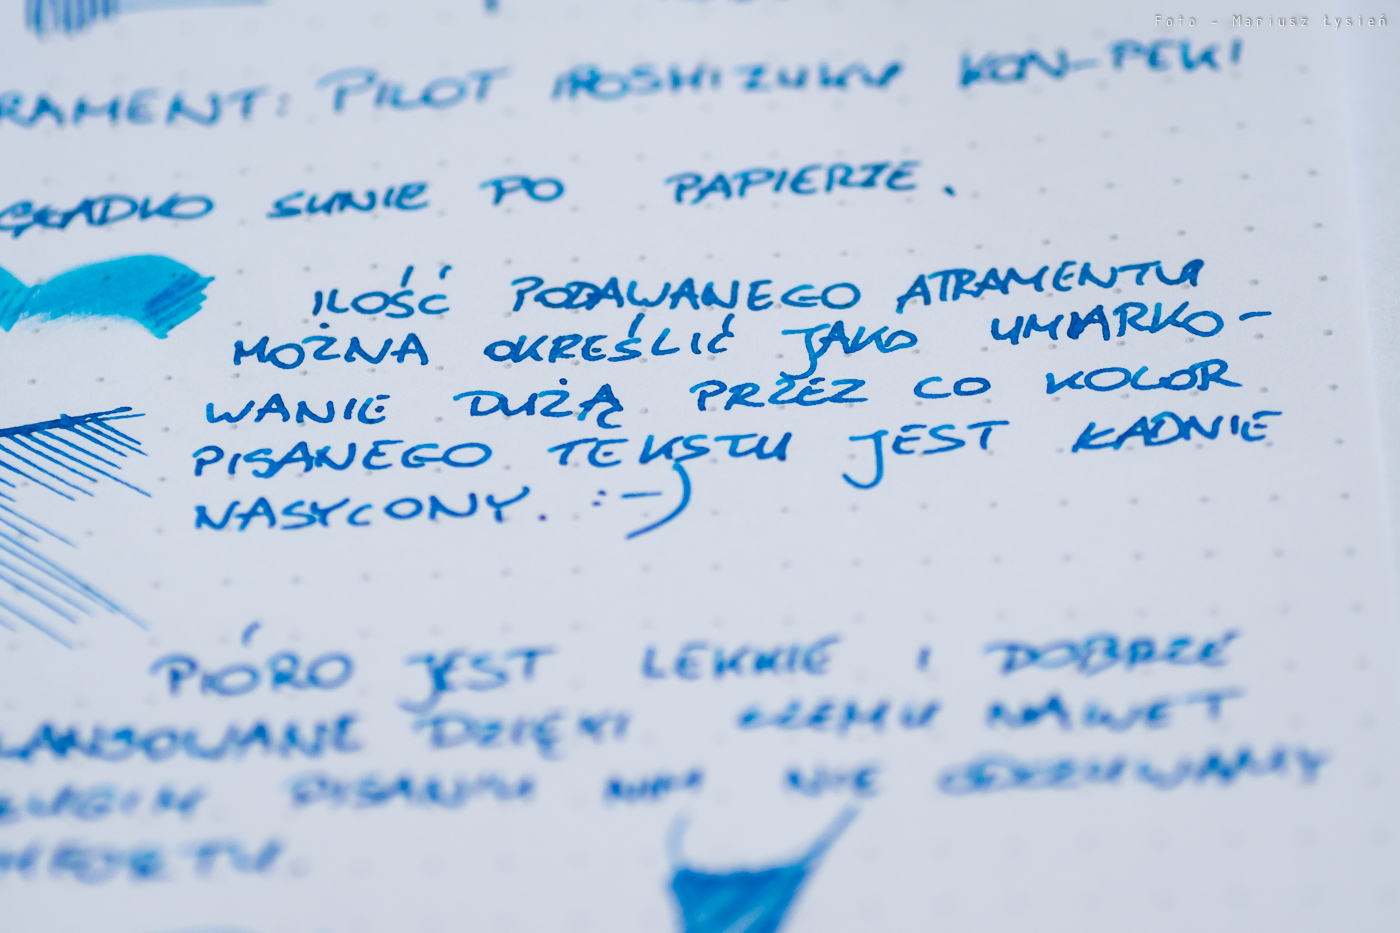 Foto - Mariusz Łysień
RAMENT: PILOT IROSHIZUKU KON-PEKI
GŁADKO SUNIE PO PAPIERZE.
ILOŚĆ PODAWANEGO ATRAMENTU
MOŻNA OKREŚLIĆ JAKO UMIARKO-
WANIE DUŻĄ PRZEZ CO KOLOR
PISANEGO TEKSTU JEST ŁADNIE
NASYCONY. :-)
PIÓRO JEST LEKKIE I DOBRZE
LANSOWANE DZIĘKI CZEMU NAWET
ŁUGIM PISANIU NIM NIE ODCZUWAMY
MFORTU.